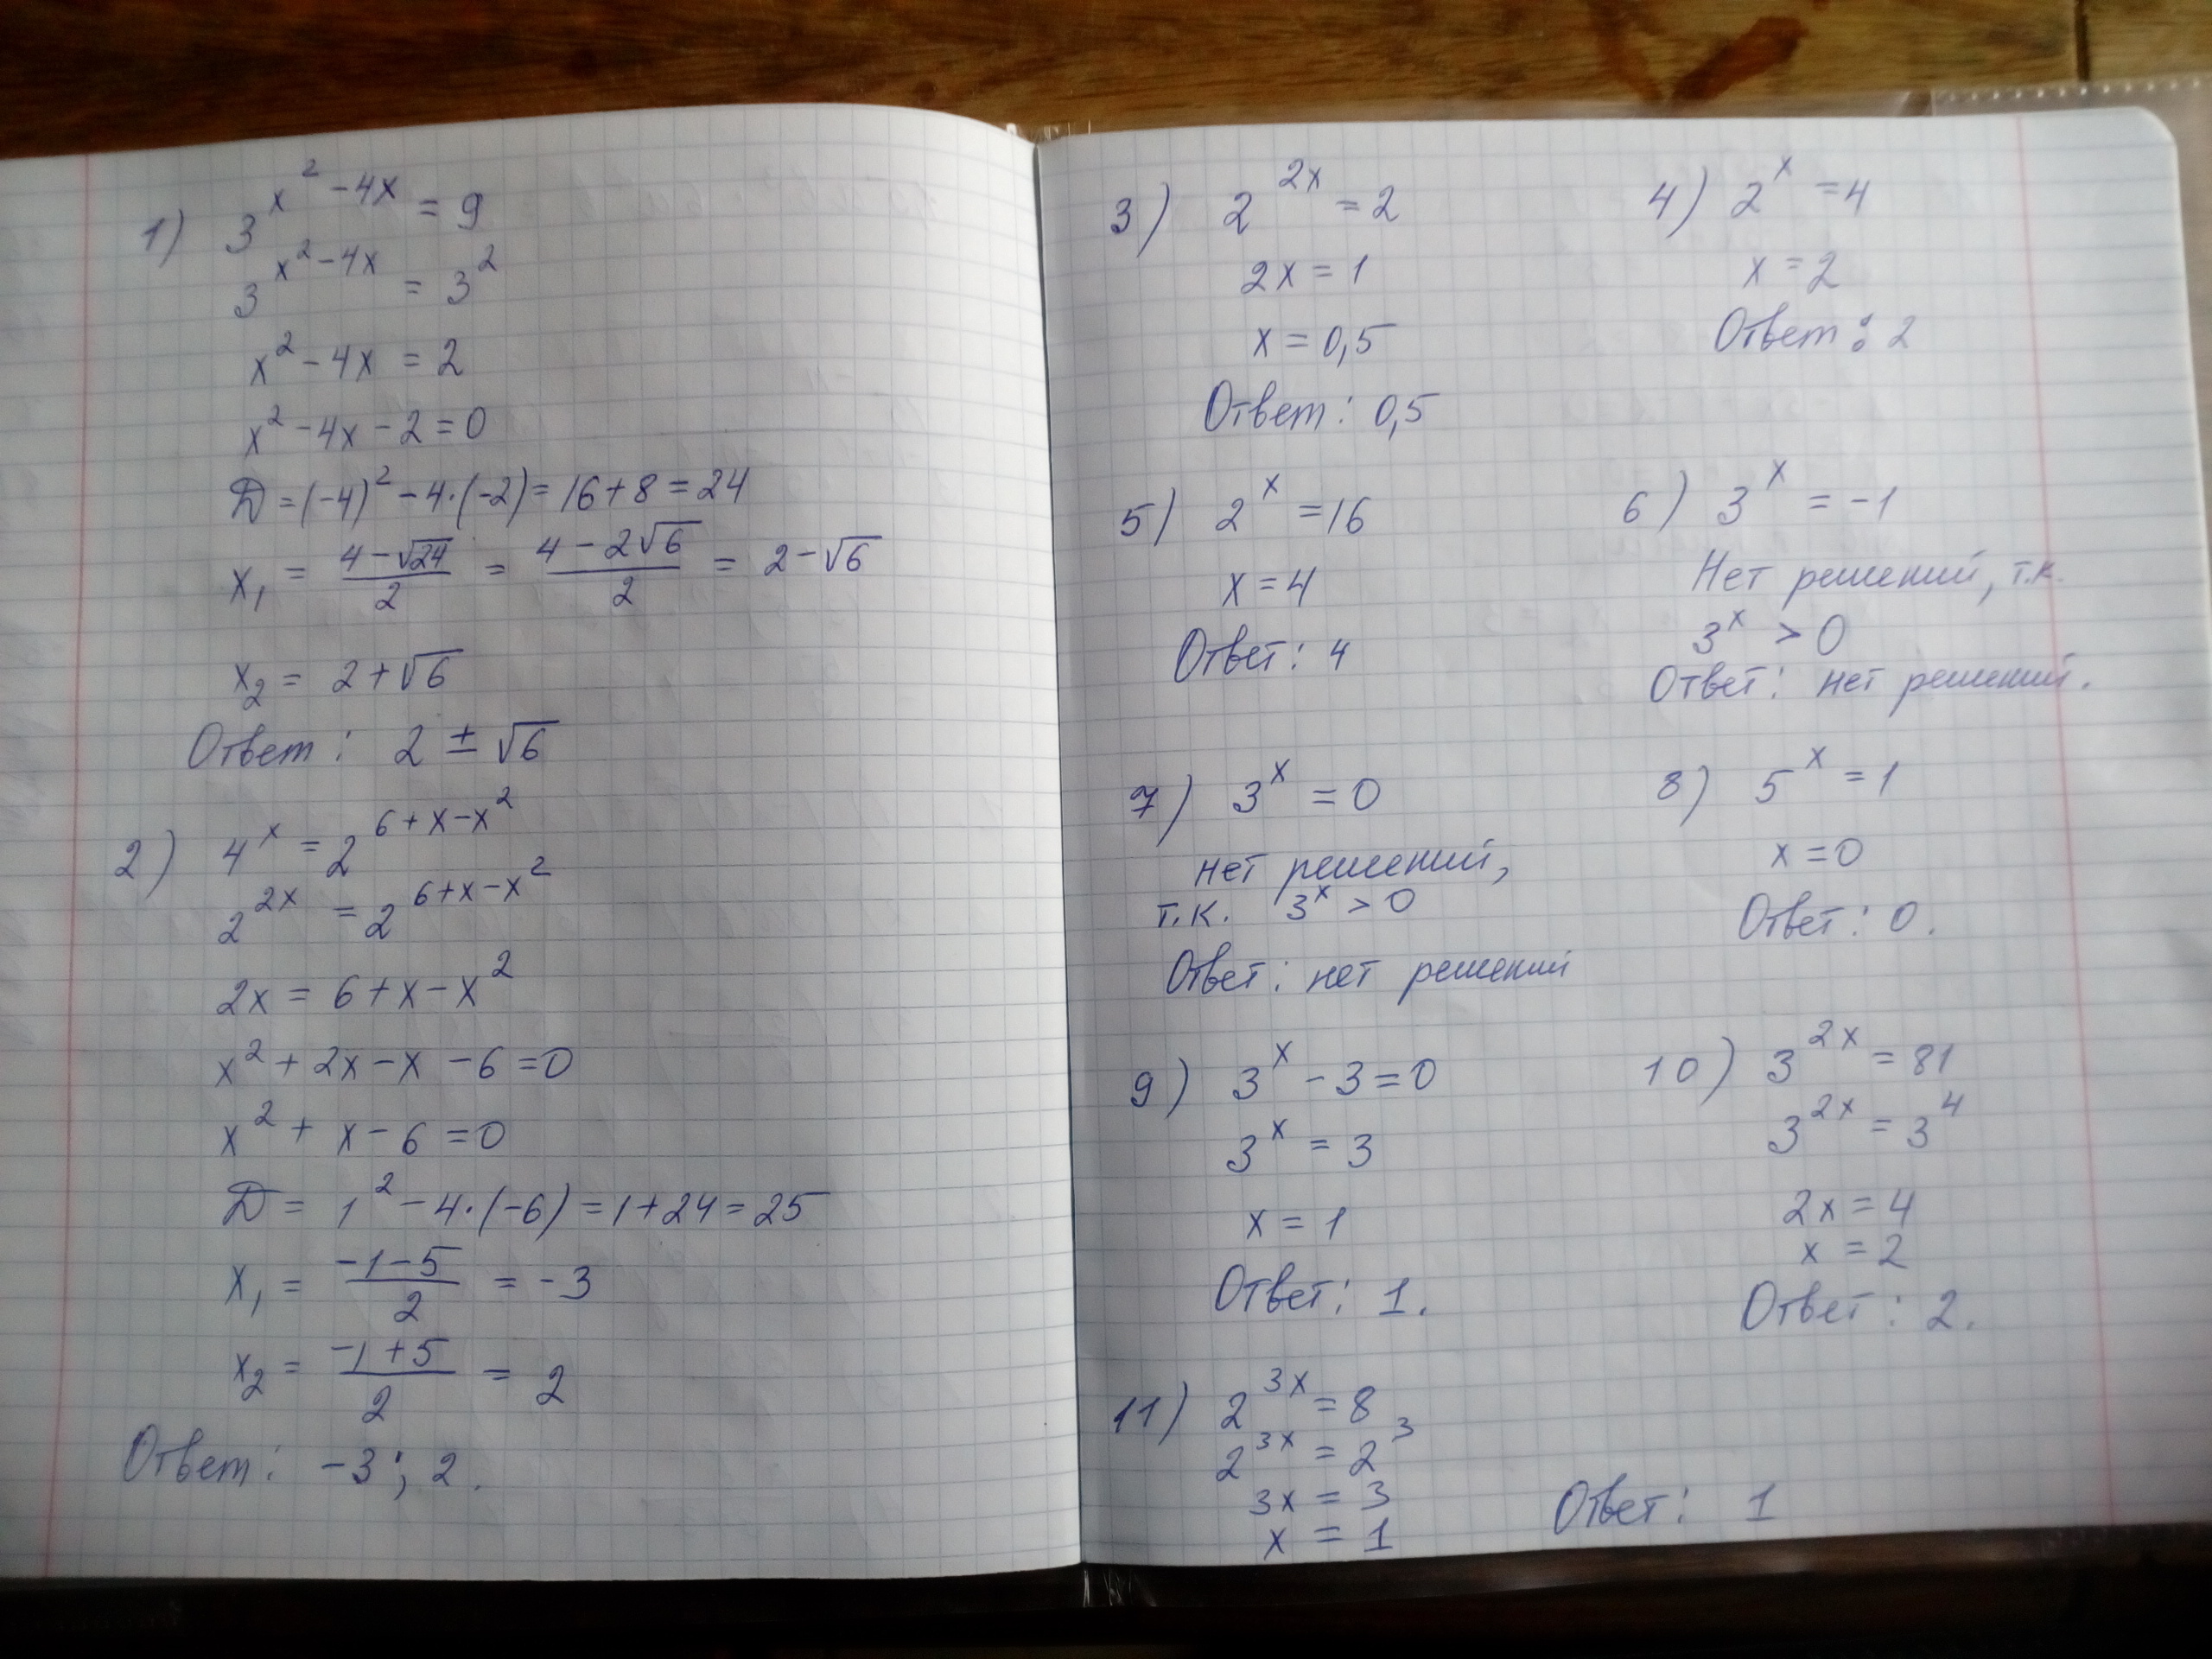 1) 3^{x^2-4x} = 9
3^{x^2-4x} = 3^2
x^2-4x = 2
x^2-4x-2=0
D=(-4)^2-4·(-2)=16+8=24
x_1 = \frac{4-\sqrt{24}}{2} = \frac{4-2\sqrt{6}}{2} = 2-\sqrt{6}
x_2 = 2+\sqrt{6}
Ответ: 2 ± \sqrt{6}
2) 4^x = 2^{6+x-x^2}
2^{2x} = 2^{6+x-x^2}
2x = 6+x-x^2
x^2+2x-x-6=0
x^2+x-6=0
D = 1^2-4·(-6)=1+24=25
x_1 = \frac{-1-5}{2} = -3
x_2 = \frac{-1+5}{2} = 2
Ответ: -3; 2.
3) 2^{2x} = 2
2x = 1
x = 0,5
Ответ: 0,5
4) 2^x = 4
x = 2
Ответ: 2
5) 2^x = 16
x = 4
Ответ: 4
6) 3^x = -1
Нет решений, т.к.
3^x > 0
Ответ: нет решений.
7) 3^x = 0
нет решений,
т.к. 3^x > 0
Ответ: нет решений
8) 5^x = 1
x = 0
Ответ: 0.
9) 3^x - 3 = 0
3^x = 3
x = 1
Ответ: 1.
10) 3^{2x} = 81
3^{2x} = 3^4
2x = 4
x = 2
Ответ: 2.
11) 2^{3x} = 8
2^{3x} = 2^3
3x = 3
x = 1
Ответ: 1